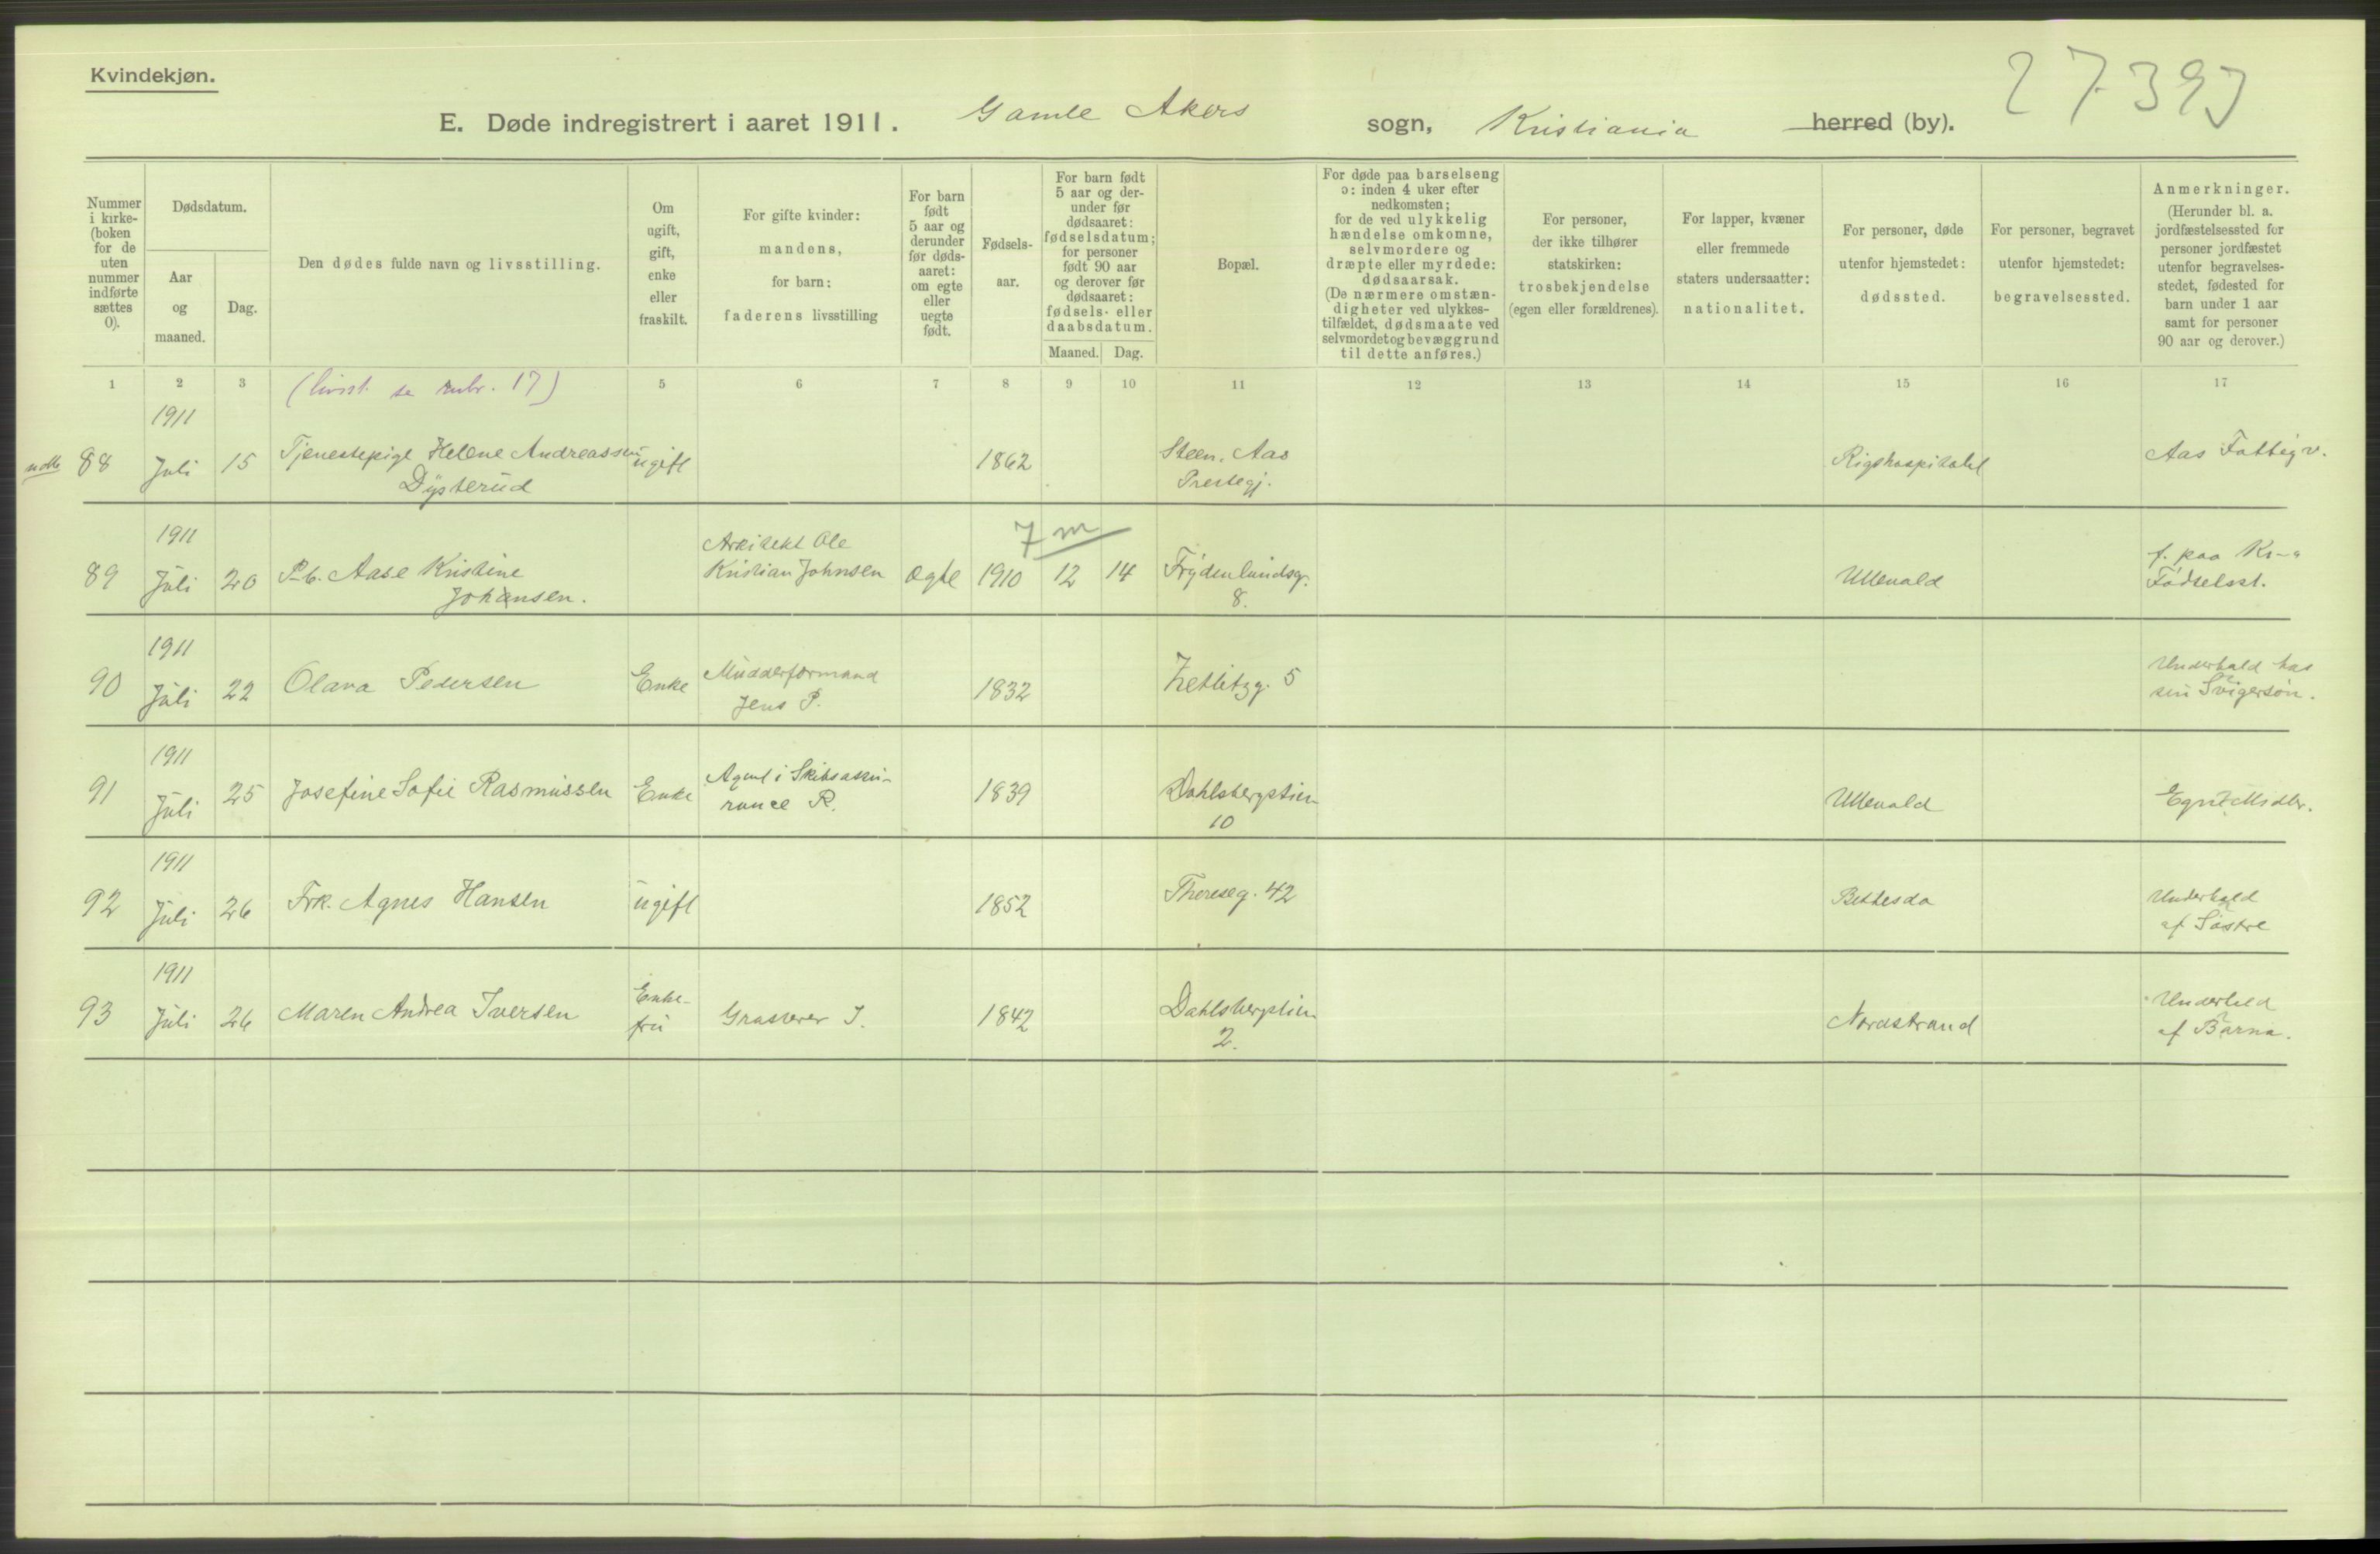 Kvindekjøn.
27397
E. Døde indregistrert i aaret 1911. Gamle Akers sogn, Kristiania herred (by).
Nummer i kirke- (boken for de uten nummer indførte sættes 0).
Dødsdatum.
Aar og maaned.
Dag.
Den dødes fulde navn og livsstilling.
Om ugift, gift, enke eller fraskilt.
For gifte kvinder: mandens, for barn: faderens livsstilling
For barn født 5 aar og derunder før døds- aaret: om egte eller uegte født.
Fødsels- aar.
For barn født 5 aar og der- under før dødsaaret: fødselsdatum; for personer født 90 aar og derover før dødsaaret: fødsels- eller daabsdatum.
Maaned. Dag.
Bopæl.
For døde paa barselseng ɔ: inden 4 uker efter nedkomsten; for de ved ulykkelig hændelse omkomne, selvmordere og dræpte eller myrdede: dødsaarsak. (De nærmere omstæn- digheter ved ulykkes- tilfældet, dødsmaate ved selvmordet og bevæggrund til dette anføres.)
For personer, der ikke tilhører statskirken: trosbekjendelse (egen eller forældrenes).
For lapper, kvæner eller fremmede staters undersaatter: nationalitet.
For personer, døde utenfor hjemstedet: dødssted.
For personer, begravet utenfor hjemstedet: begravelsessted.
Anmerkninger. (Herunder bl. a. jordfæstelsessted for personer jordfæstet utenfor begravelses- stedet, fødested for barn under 1 aar samt for personer 90 aar og derover.)
1 2 3 (livsst. se rubr. 17) 5 6 7 8 9 10 11 12 13 14 15 16 17
1911
88 Juli 15 Tjenestepige Helene Andreassen ugift 1862 Steen, Aas Rigshospitalet Aas Fattigv.
Dysterud Prestegj.
1911 Arkitekt Ole 7 m f. paa Kr-a
89 Juli 20 P.b. Aase Kristine Kristian Johnsen Ægte 1910 12 14 Frydenlundsg. Ullevold Fødselsst.
Johansen. 8.
1911 Mudderformand Underhold hos
90 Juli 22 Olava Pedersen Enke Jens P. 1832 Zetlitzg. 5 sin Svigersøn.
1911 Agent i Skibsassu-
91 Juli 25 Josefine Sofie Rasmussen Enke rance R. 1839 Dahlsbergstien Ullevold Egne Midler.
10
1911 Underhold
92 Juli 26 Frk. Agnes Hansen ugift 1852 Thereseg. 42 Bethesda af Søstre
1911 Enke- Underhold
93 Juli 26 Maren Andrea Iversen fru Grosserer I. 1842 Dahlsbergstien Nordstrand af Barna.
2.